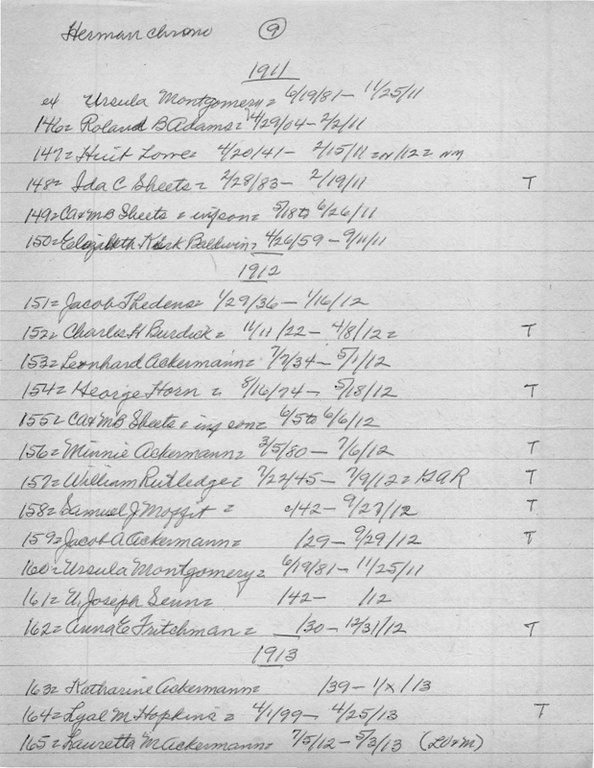 Herman chrono 9
1911
ex Ursula Montgomery= 6/19/81 - 11/25/11
146= Roland B Adams= 4/29/04 - 2/2/11
147= Huit Lowe= 4/20/41 - 2/15/11 = N/12 = NM
148= Ida C Sheets= 2/28/83 - 2/19/11 T
149= CA & MB Sheets = inf son= 5/18 to 6/26/11
150= Elizabeth Kirk Baldwin= 4/26/59 - 9/11/11
1912
151= Jacob Thedens= 1/29/36 - 1/16/12
152= Charles H Burdick= 11/11/22 - 4/8/12= T
153= Leonhard Ackermann= 7/7/34 - 5/1/12
154= George Horn = 8/16/74 - 5/18/12 T
155= CA & MB Sheets = inf son= 6/5 to 6/6/12
156= Minnie Ackermann= 3/5/80 - 7/6/12 T
157= William Rutledge= 7/22/45 - 7/9/12= GAR T
158= Samuel J Moffit = c/42 - 9/27/12 T
159= Jacob A Ackermann= /29 - 9/29/12 T
160= Ursula Montgomery= 6/19/81 - 11/25/11
161= U. Joseph Senn= /42 - /12
162= Anna E Fritchman= /30 - 12/31/12 T
1913
163= Katharine Ackermann= /39 - 1/x/13
164= Lyal M Hopkins = 4/1/99 - 4/25/13 T
165= Lauretta M Ackermann= 7/5/12 - 5/3/13 (LO&M)